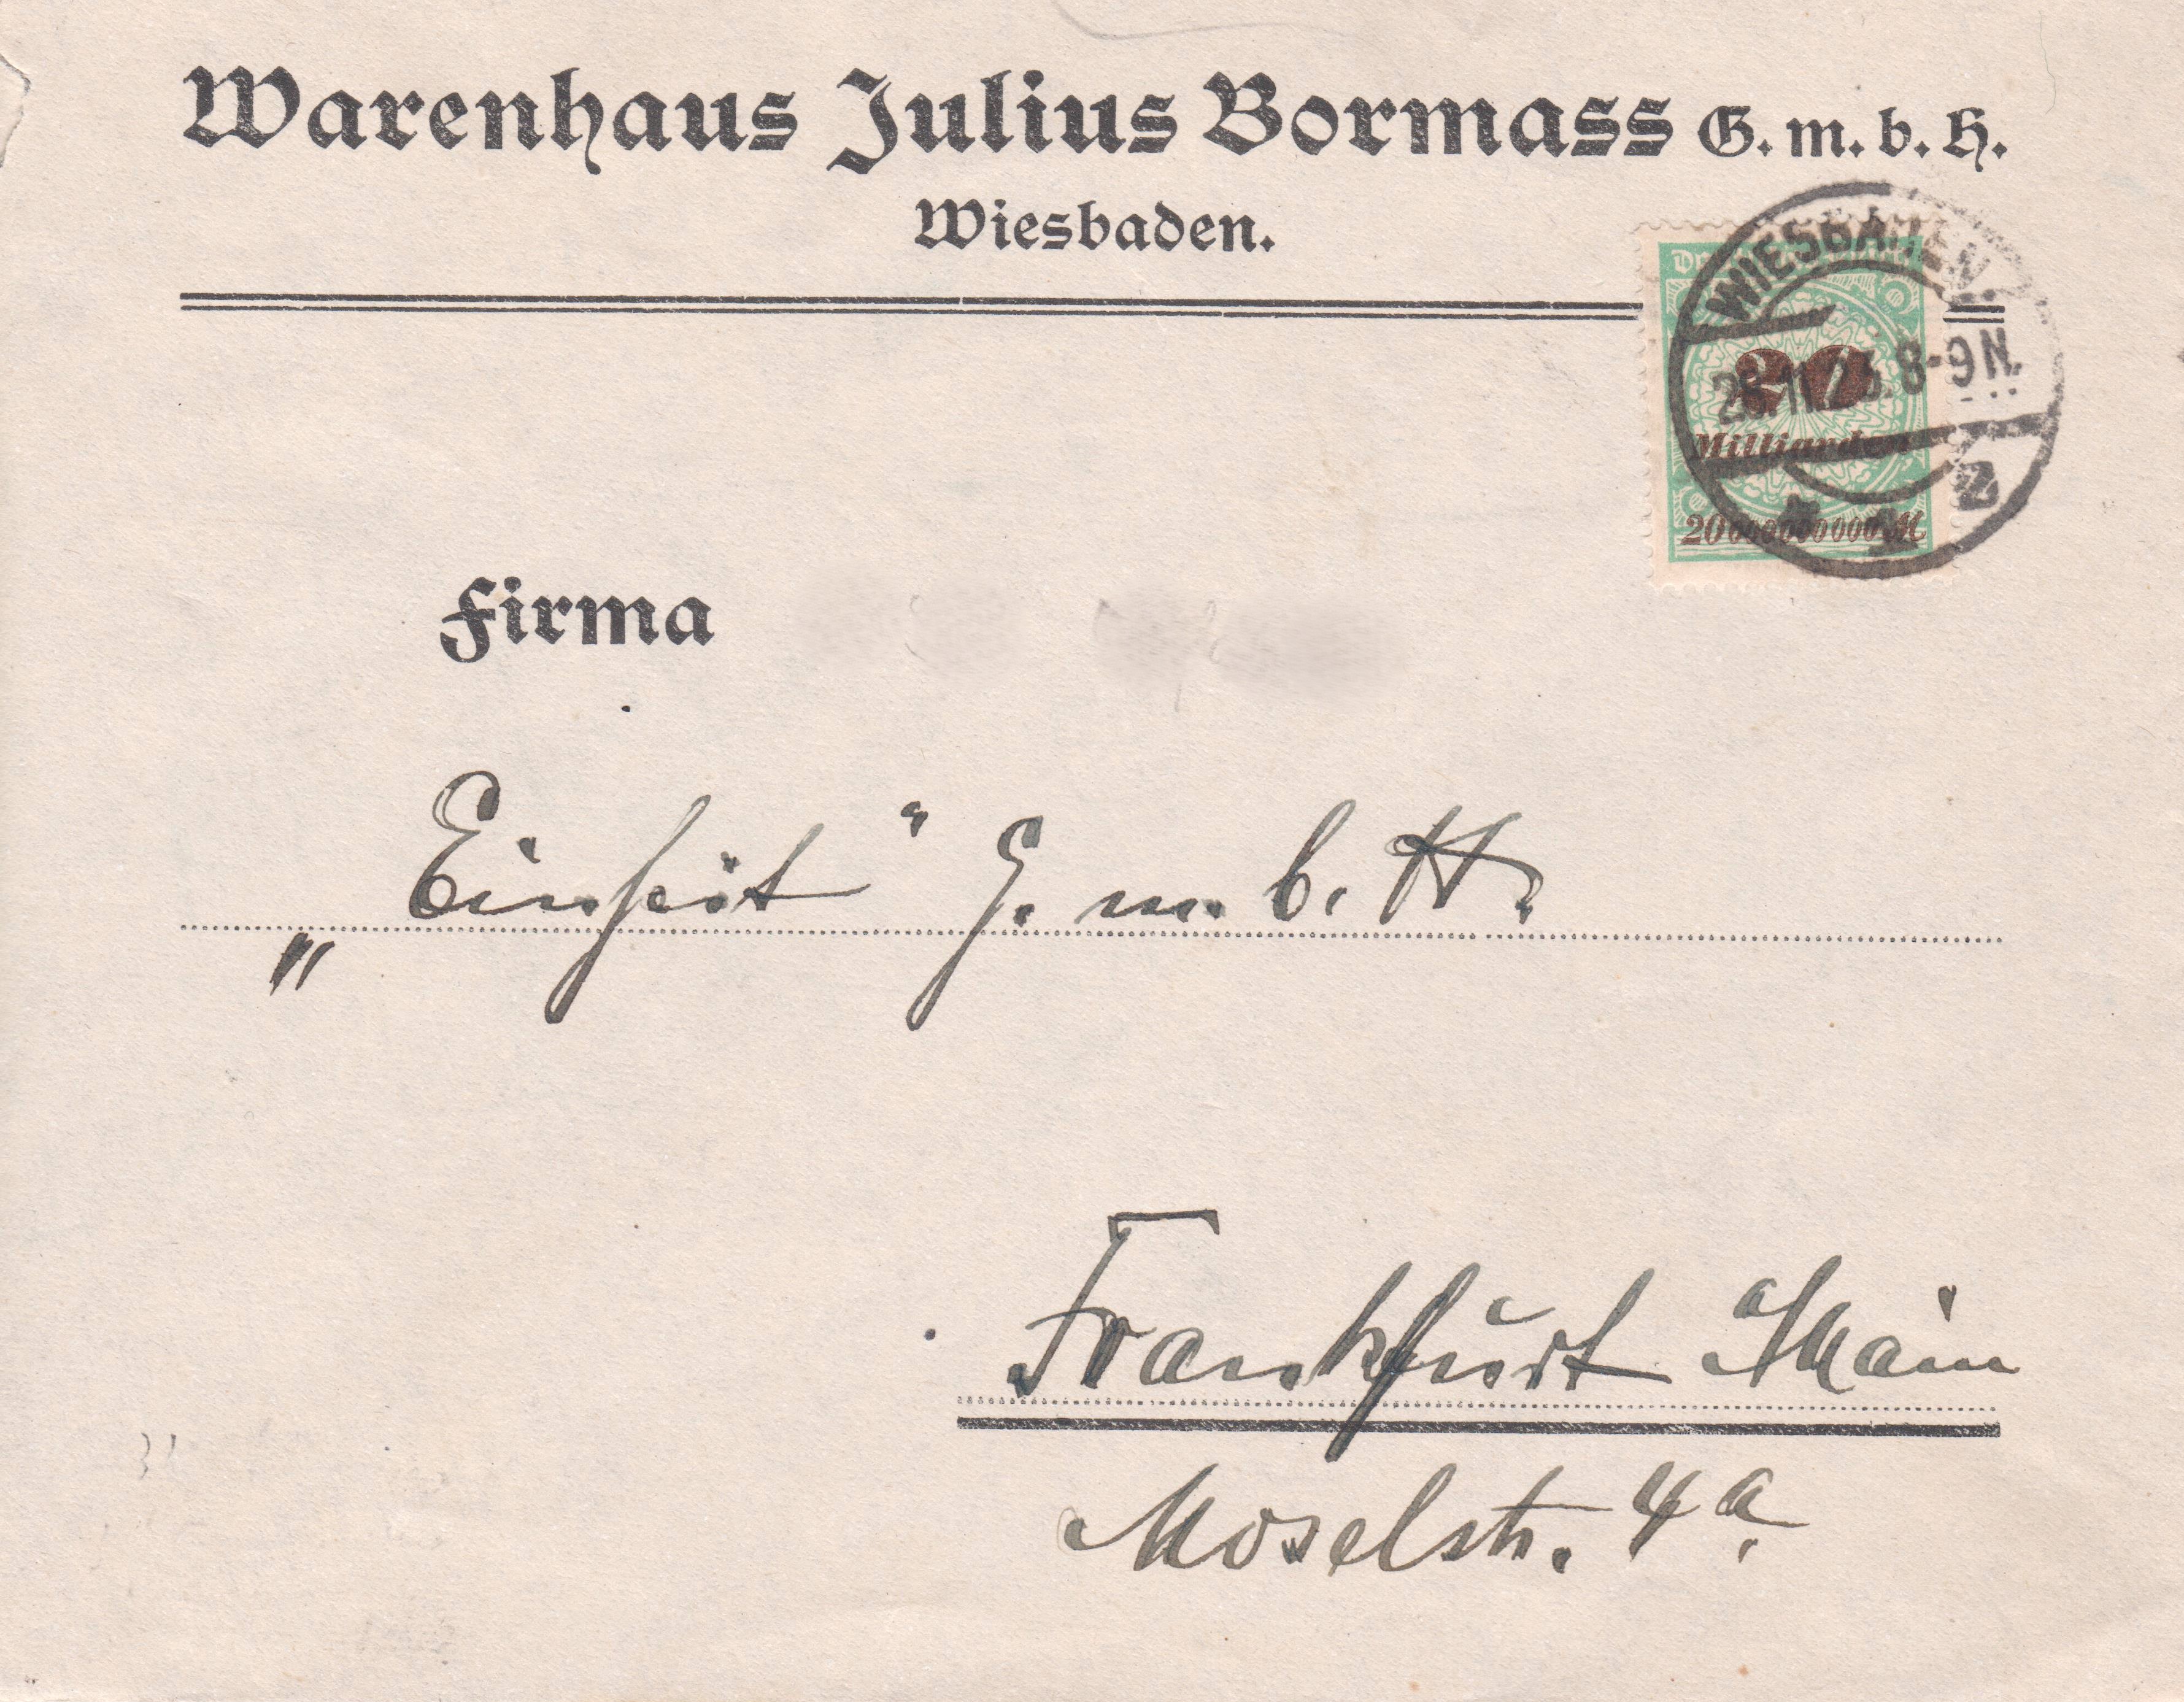 Warenhaus Julius Bormass G. m. b. H.
Wiesbaden.
WIESBADEN
20
8-9 N.
Milliarden
20000000000 M
Firma
„Einheit“ G. m. b. H.
Frankfurt a/Main
Moselstr. 4a.